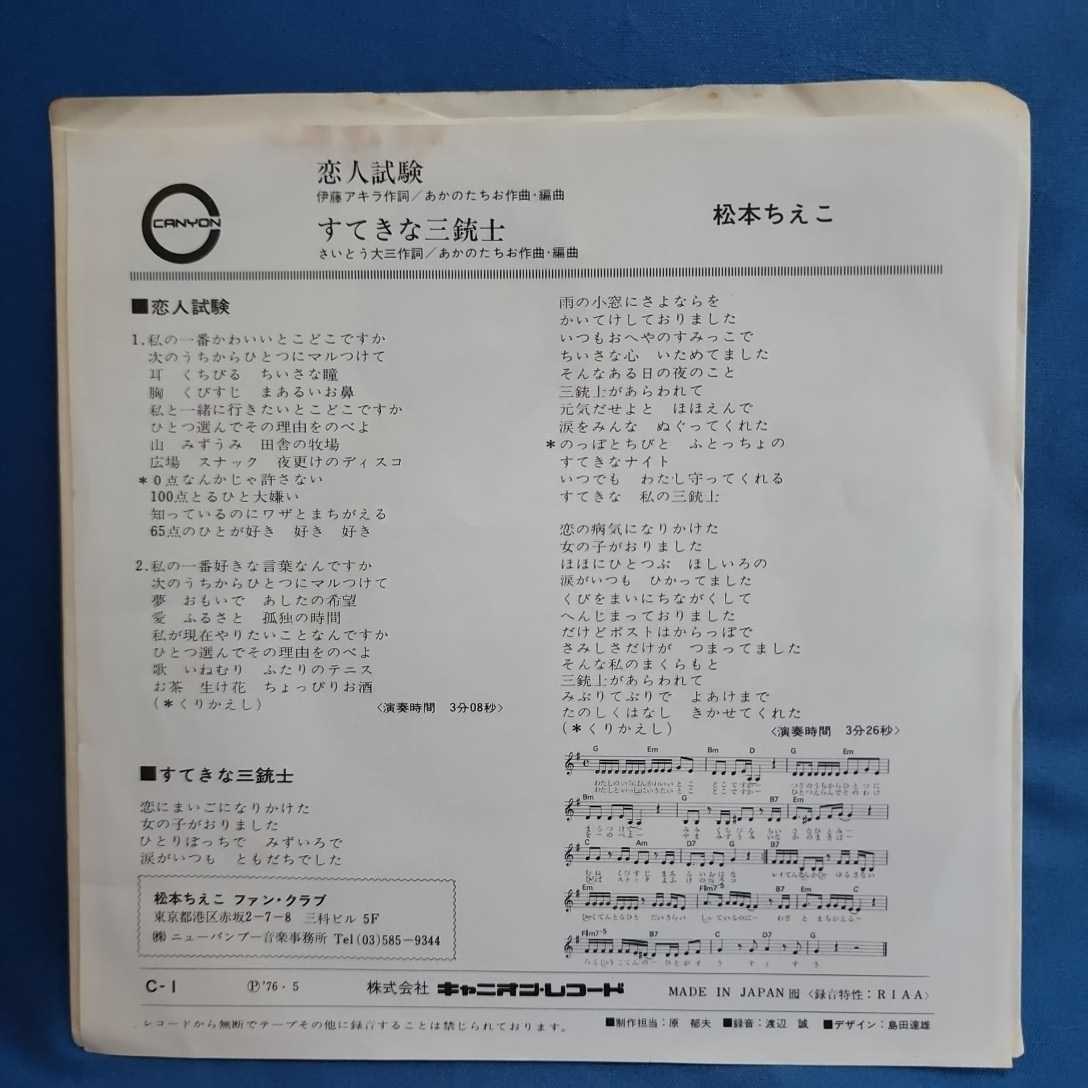 CANYON
恋人試験
伊藤アキラ作詞／あかのたちお作曲・編曲
すてきな三銃士
さいとう大三作詞／あかのたちお作曲・編曲
松本ちえこ
■恋人試験
1.私の一番かわいいとこどこですか
次のうちからひとつにマルつけて
耳　くちびる　ちいさな瞳
胸　くびすじ　まあるいお鼻
私と一緒に行きたいとこどこですか
ひとつ選んでその理由をのべよ
山　みずうみ　田舎の牧場
広場　スナック　夜更けのディスコ
＊0点なんかじゃ許さない
100点とるひと大嫌い
知っているのにワザとまちがえる
65点のひとが好き　好き　好き
2.私の一番好きな言葉なんですか
次のうちからひとつにマルつけて
夢　おもいで　あしたの希望
愛　ふるさと　孤独の時間
私が現在やりたいことなんですか
ひとつ選んでその理由をのべよ
歌　いねむり　ふたりのテニス
お茶　生け花　ちょっぴりお酒
(＊くりかえし)　〈演奏時間　3分08秒〉
■すてきな三銃士
恋にまいごになりかけた
女の子がおりました
ひとりぼっちで　みずいろで
涙がいつも　ともだちでした
雨の小窓にさよならを
かいてけしておりました
いつもおへやのすみっこで
ちいさな心　いためてました
そんなある日の夜のこと
三銃士があらわれて
元気だせよと　ほほえんで
涙をみんな　ぬぐってくれた
＊のっぽとちびと　ふとっちょの
すてきなナイト
いつでも　わたし守ってくれる
すてきな　私の三銃士
恋の病気になりかけた
女の子がおりました
ほほにひとつぶ　ほしいろの
涙がいつも　ひかってました
くびをまいにちながくして
へんじまっておりました
だけどポストはからっぽで
さみしさだけが　つまってました
そんな私のまくらもと
三銃士があらわれて
みぶりてぶりで　よあけまで
たのしくはなし　きかせてくれた
(＊くりかえし)　〈演奏時間　3分26秒〉
G Em Bm D G Em
Bm G B7 Em
C Am D7 G B7
Em F#m7-5 B7 Em C
F#m7-5 B7 C D7 G
松本ちえこ ファン・クラブ
東京都港区赤坂2-7-8　三科ビル 5F
㈱ニューバンブー音楽事務所 Tel(03)585-9344
C-1　Ⓟ'76・5　株式会社 キャニオン・レコード　MADE IN JAPAN 〈録音特性：RIAA〉
レコードから無断でテープその他に録音することは禁じられております。　■制作担当：原　郁夫　■録音：渡辺　誠　■デザイン：島田達雄